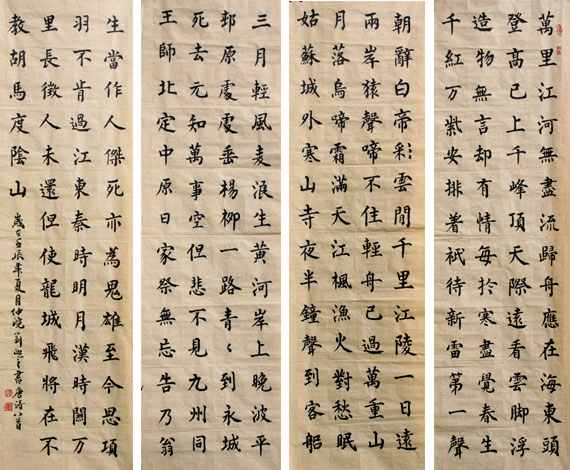 萬里江河無盡流歸舟應在海東頭
登高已上千峰頂天際遠看雲脚浮
造物無言却有情每於寒盡覺春生
千紅万紫安排着祇待新雷第一聲
朝辭白帝彩雲間千里江陵一日還
兩岸猿聲啼不住輕舟已過萬重山
月落烏啼霜滿天江楓漁火對愁眠
姑蘇城外寒山寺夜半鐘聲到客船
三月輕風麦浪生黄河岸上晚波平
邨原處處垂楊柳一路青々到永城
死去元知萬事空但悲不見九州同
王師北定中原日家祭無忘告乃翁
生當作人傑死亦為鬼雄至今思項
羽不肯過江東秦時明月漢時關万
里長徵人未還但使龍城飛將在不
教胡馬度陰山
歲在壬辰年夏月仲浣書唐诗八首